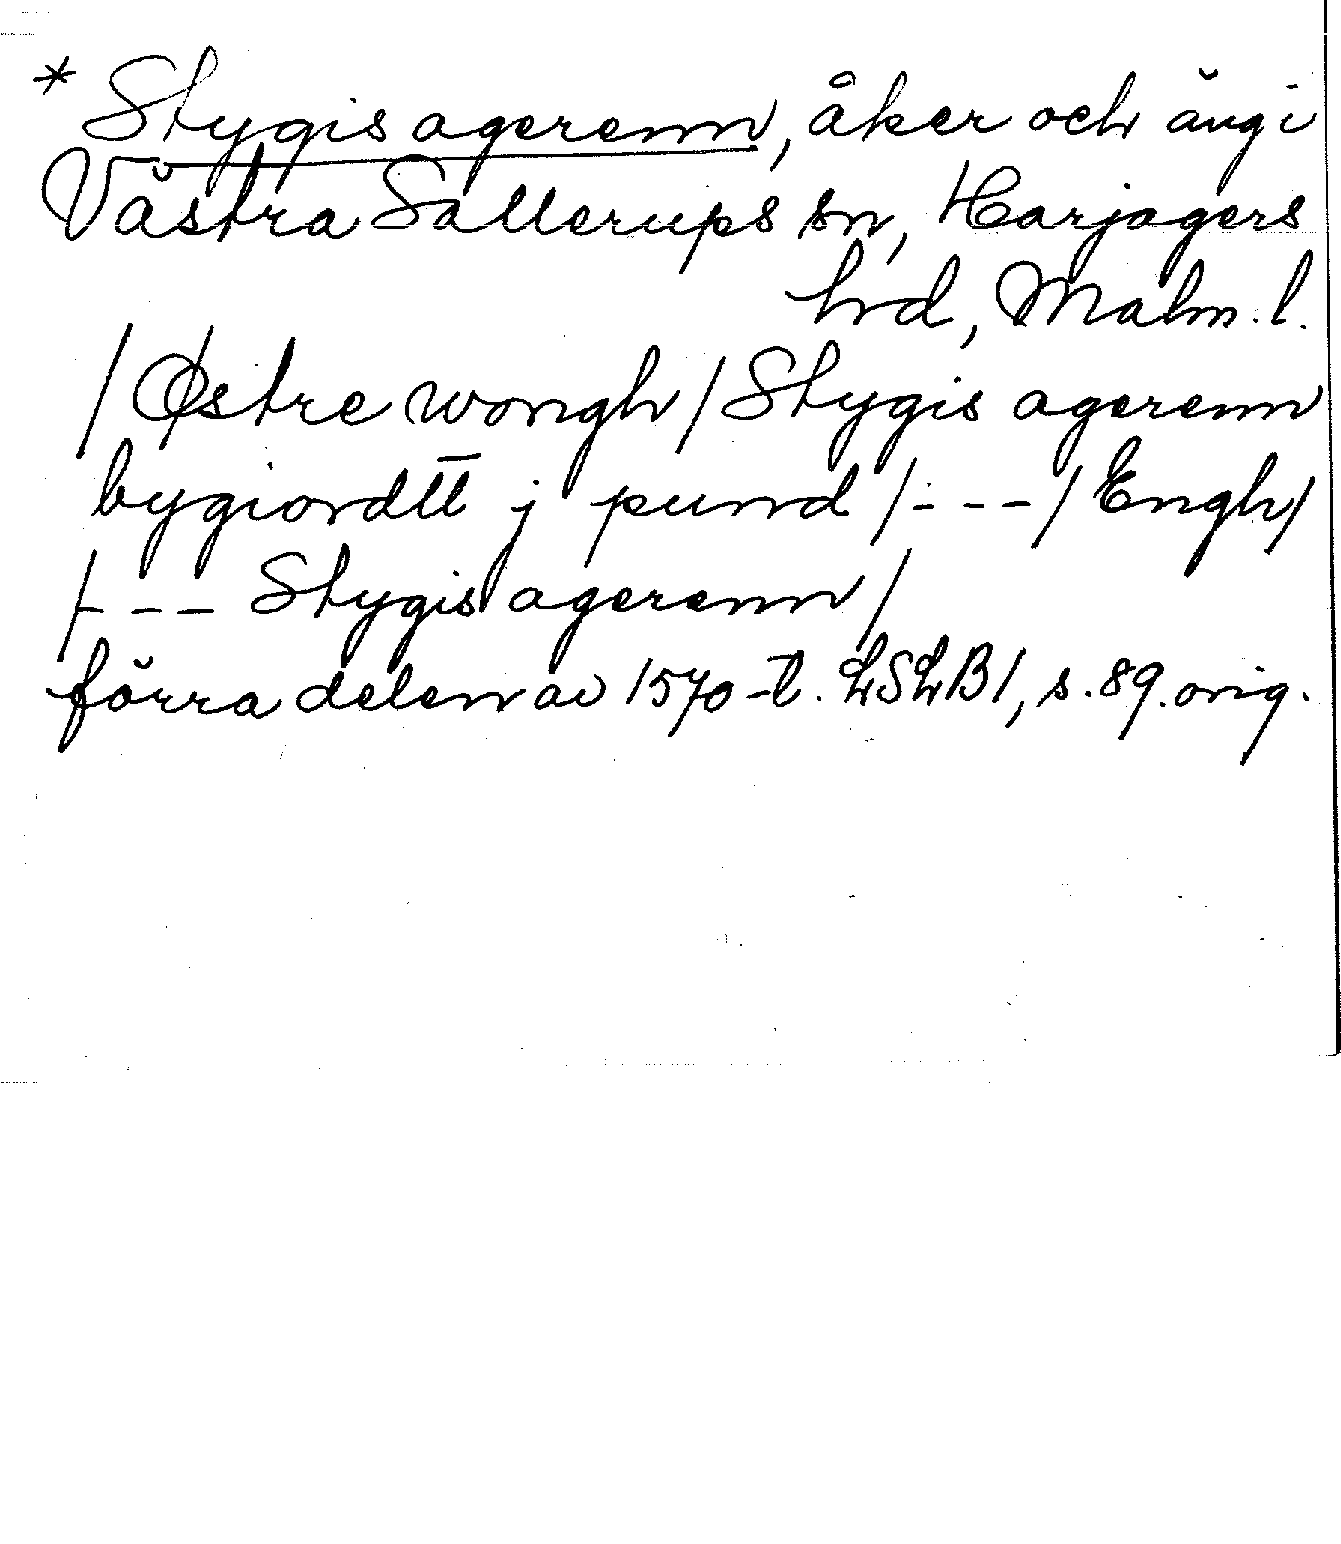 * Stygis agerenn, åker och äng i
Västra Sallerups sn, Harjagers
hrd, Malm. l.
/Østre wongh/ Stygis agerenn
bygiordtt j pund /---/ Engh/
/--- Stygis agerenn/
förra delen av 1570-t. LSLB1, s. 89. orig.